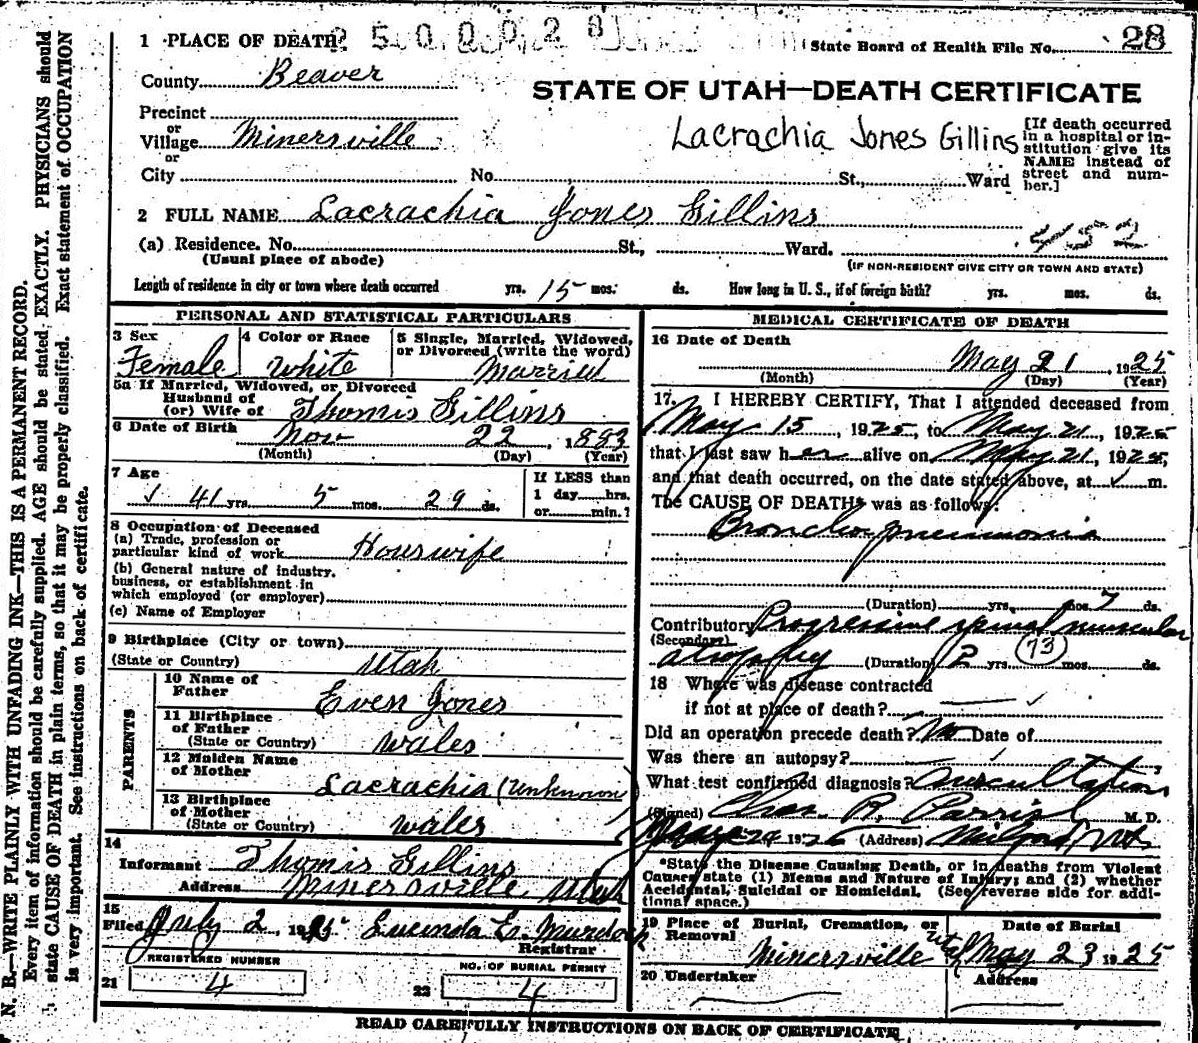 N. B.—WRITE PLAINLY WITH UNFADING INK—THIS IS A PERMANENT RECORD.
Every item of information should be carefully supplied. AGE should be stated EXACTLY. PHYSICIANS should
state CAUSE OF DEATH in plain terms, so that it may be properly classified. Exact statement of OCCUPATION
is very important. See instructions on back of certificate.
1 PLACE OF DEATH 2500028
State Board of Health File No. 28
County Beaver
STATE OF UTAH—DEATH CERTIFICATE
Precinct
or
Village Minersville
or
City No. St., Ward
Lacrachia Jones Gillins
[If death occurred
in a hospital or in-
stitution give its
NAME instead of
street and num-
ber.]
2 FULL NAME Lacrachia Jones Gillins
452
(a) Residence. No. St., Ward.
(Usual place of abode)
(IF NON-RESIDENT GIVE CITY OR TOWN AND STATE)
Length of residence in city or town where death occurred yrs. 15 mos. ds. How long in U. S., if of foreign birth? yrs. mos. ds.
PERSONAL AND STATISTICAL PARTICULARS
3 Sex 4 Color or Race 5 Single, Married, Widowed,
or Divorced (write the word)
Female White Married
5a If Married, Widowed, or Divorced
Husband of
(or) Wife of Thomis Gillins
6 Date of Birth Nov 22, 1883
(Month) (Day) (Year)
7 Age
41 yrs. 5 mos. 29 ds.
If LESS than
1 day hrs.
or min.?
8 Occupation of Deceased
(a) Trade, profession or
particular kind of work Houswife
(b) General nature of industry,
business, or establishment in
which employed (or employer)
(c) Name of Employer
9 Birthplace (City or town)
(State or Country) Utah
PARENTS
10 Name of
Father Even Jones
11 Birthplace
of Father
(State or Country) Wales
12 Maiden Name
of Mother Lacrachia (Unknown)
13 Birthplace
of Mother
(State or Country) Wales
14
Informant Thomis Gillins
Address Minersville Utah
15
Filed July 2 1925 Lucinda E. Murdock
Registrar
REGISTERED NUMBER
21 4
NO. OF BURIAL PERMIT
22 4
MEDICAL CERTIFICATE OF DEATH
16 Date of Death
May 21, 1925
(Month) (Day) (Year)
17. I HEREBY CERTIFY, That I attended deceased from
May 15, 1925, to May 21, 1925
that I last saw her alive on May 21, 1925,
and that death occurred, on the date stated above, at m.
The CAUSE OF DEATH* was as follows:
Broncho pneumonia
(Duration) yrs. mos. 7 ds.
Contributory Progressive spinal muscular
(Secondary)
atrophy (Duration) 2 yrs. (73) mos. ds.
18 Where was disease contracted
if not at place of death?
Did an operation precede death? No Date of
Was there an autopsy?
What test confirmed diagnosis? Auscultation
(Signed) Chas. R. Parrish M. D.
24 1925 (Address) Milford, Ut
*State the Disease Causing Death, or in deaths from Violent
Causes, state (1) Means and Nature of Injury; and (2) whether
Accidental, Suicidal or Homicidal. (See reverse side for addi-
tional space.)
19 Place of Burial, Cremation, or
Removal
Date of Burial
Minersville Utah May 23 1925
20 Undertaker
Address
READ CAREFULLY INSTRUCTIONS ON BACK OF CERTIFICATE